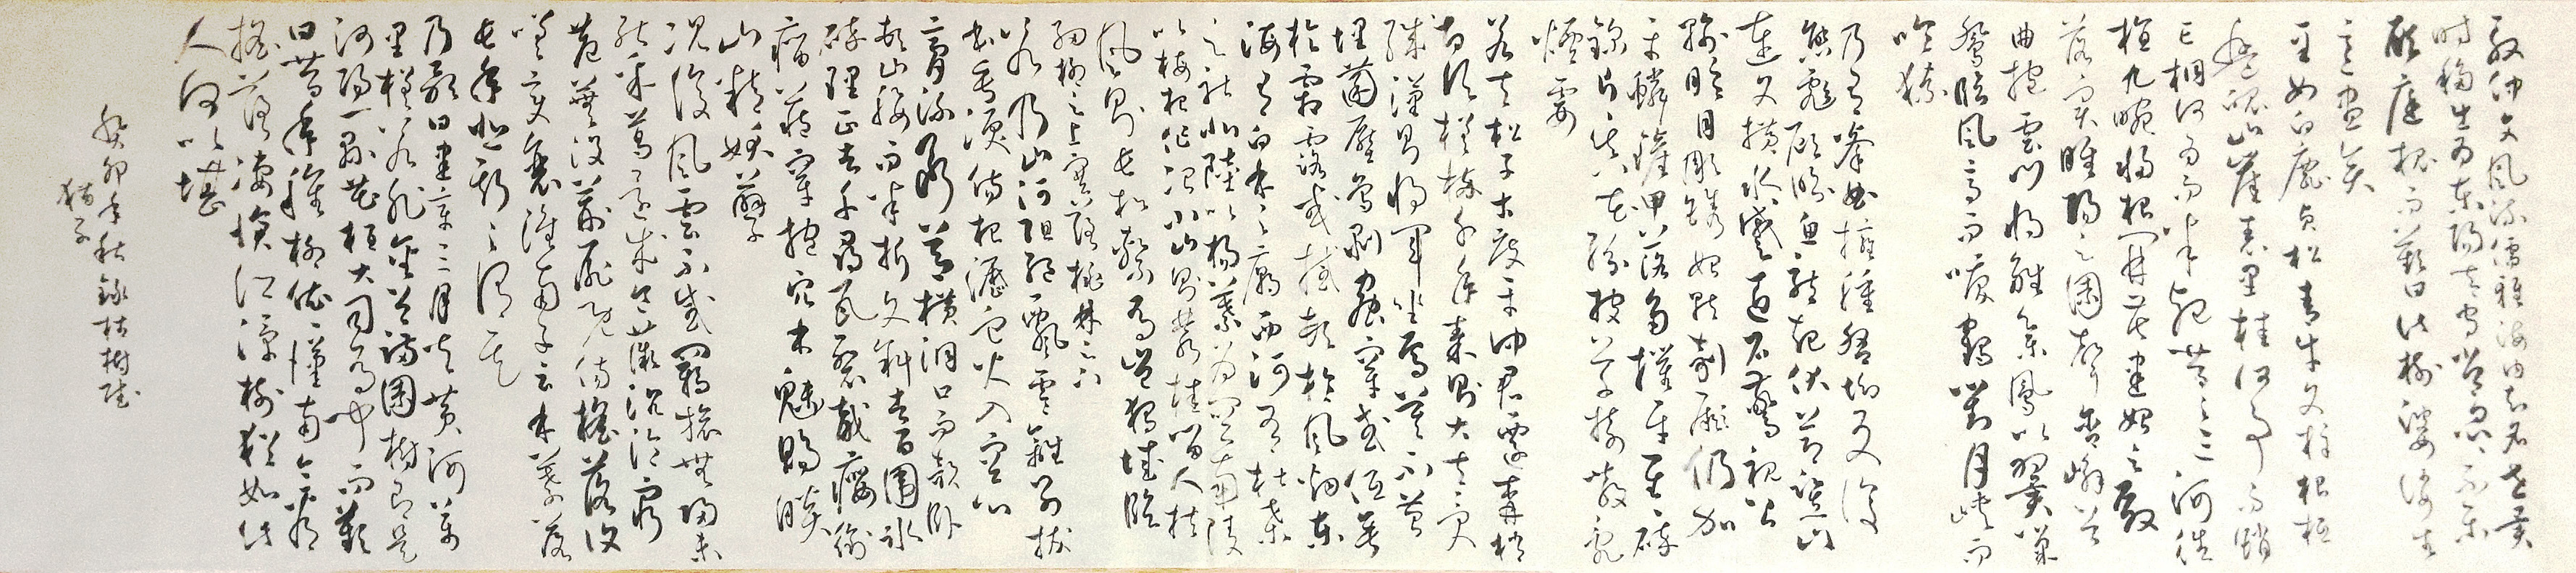 殷仲文風流儒雅海內知名世異
時移出為東陽太守常忽忽不樂
顧庭槐而歎曰此樹婆娑生
意盡矣
至如白鹿貞松青牛文梓根柢
盤魄山崖表裏桂何事而銷
亡桐何為而半死昔之三河徙
植九畹移根開花建始之殿
落實睢陽之園聲含嶰谷
曲抱雲門將雛集鳳比翼巢
鴛臨風亭而唳鶴對月峽而
吟猿
乃有拳曲擁腫盤坳反覆
熊彪顧盼魚龍起伏節豎山
連文橫水蹙匠石驚視公
輸眩目雕鐫始就剞劂仍加
平鱗鏟甲落角摧牙重重碎
錦片片真花紛披草樹散亂
煙霞
若夫松子古度平仲君遷森梢
百頃槎枿千年秦則大夫受
職漢則將軍坐焉莫不苔
埋菌壓鳥剝蟲穿或低垂
於霜露或撼頓於風煙東
海有白木之廟西河有枯桑
之社北陸以楊葉為關南陵
以梅根作冶小山則叢桂留人扶
風則長松繫馬豈獨城臨
細柳之上塞落桃林之下
若乃山河阻絕飄零離別拔
本垂淚傷根瀝血火入空心
膏流斷節橫洞口而敧臥
頓山腰而半折文斜者百圍冰
碎理正者千尋瓦裂載癭銜
瘤藏穿抱穴木魅睗睒
山精妖孽
況復風雲不感羈旅無歸未
能采葛還成食薇沉淪窮
巷蕪沒荊扉既傷搖落彌
嗟變衰淮南子云木葉落
長年悲斯之謂矣
乃歌曰建章三月火黃河萬
里槎若非金谷滿園樹即是
河陽一縣花桓大司馬聞而歎
曰昔年種柳依依漢南今看
搖落悽愴江潭樹猶如此
人何以堪
癸卯年秋錄枯樹賦